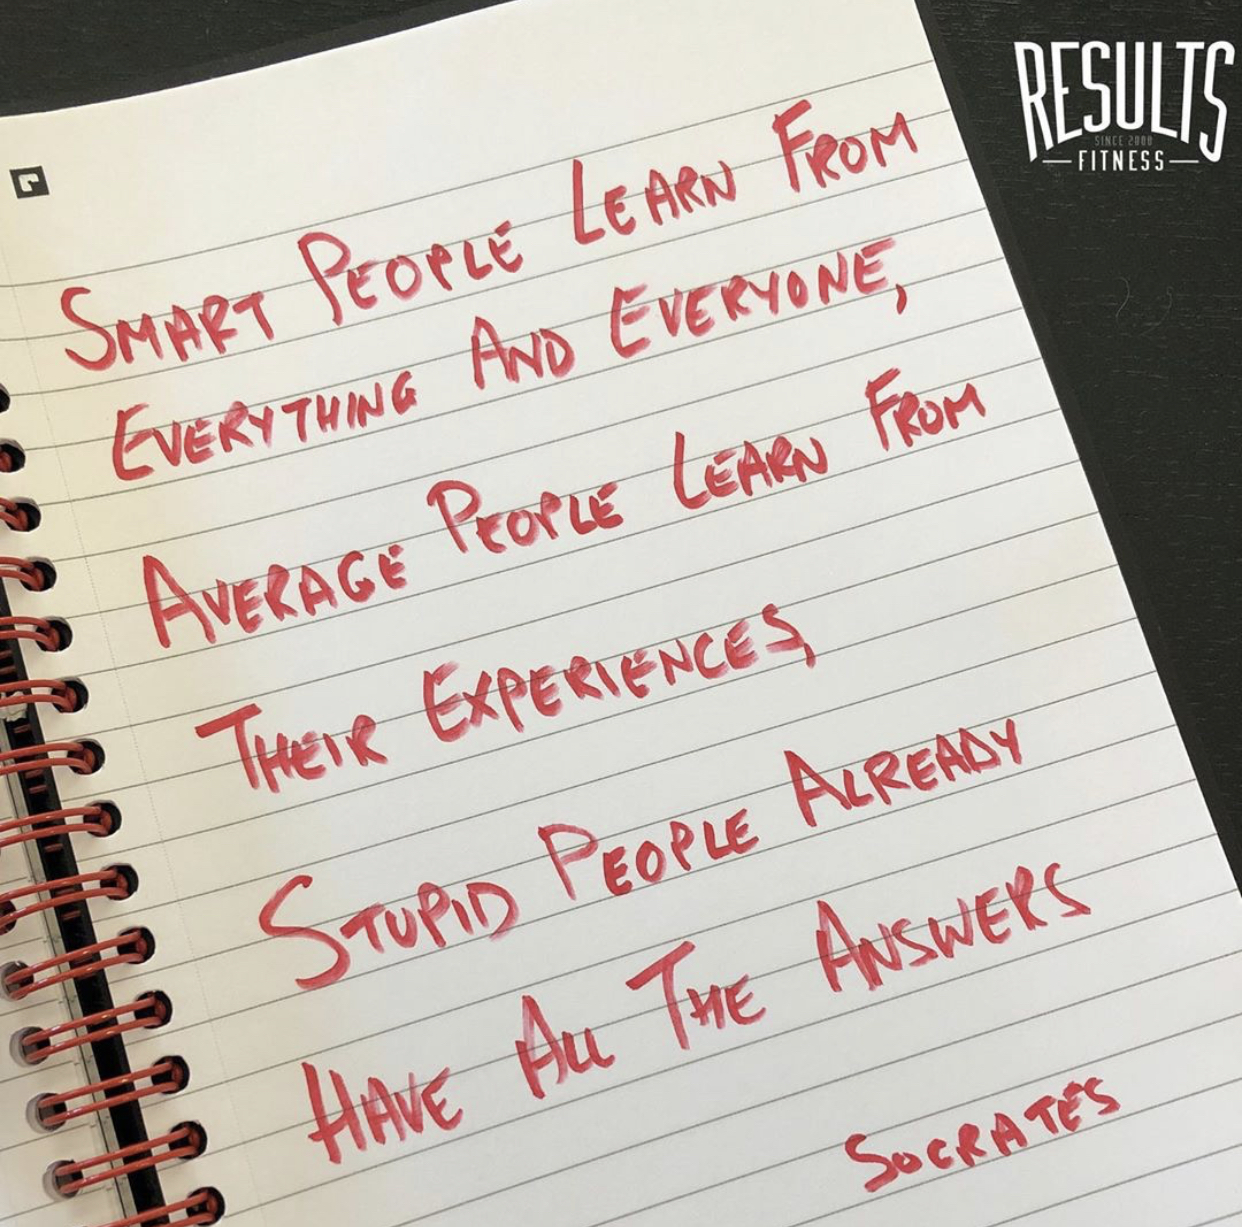 RESULTS
SINCE 2000
FITNESS
SMART PEOPLE LEARN FROM
EVERYTHING AND EVERYONE,
AVERAGE PEOPLE LEARN FROM
THEIR EXPERIENCES,
STUPID PEOPLE ALREADY
HAVE ALL THE ANSWERS
SOCRATES